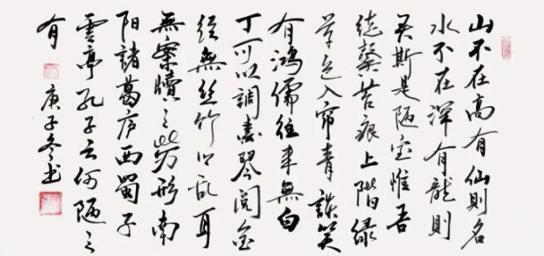 山不在高有仙則名
水不在深有龍則
灵斯是陋室惟吾
德馨苔痕上階緑
草色入帘青談笑
有鴻儒往来無白
丁可以調素琴閲金
经無丝竹之乱耳
無案牘之劳形南
阳諸葛庐西蜀子
雲亭孔子云何陋之
有
庚子冬书